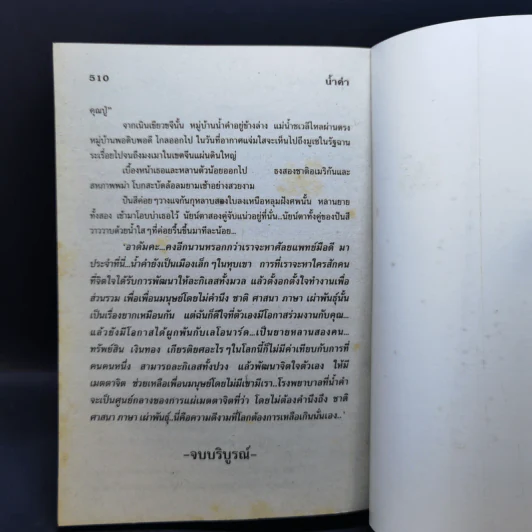 510
น้ำคำ
คุณปู่"
จากเนินเขียวขจีนั้น หมู่บ้านน้ำคำอยู่ข้างล่าง แม่น้ำชเวลีไหลผ่านตรง
หมู่บ้านพอดิบพอดี ไกลออกไป ในวันที่อากาศแจ่มใสจะเห็นไปถึงมูเซในรัฐฉาน
ระเรื่อยไปจนถึงมงเมาในเขตจีนแผ่นดินใหญ่
เบื้องหน้าเธอและหลานตัวน้อยออกไป ธงสองชาติอเมริกันและ
สหภาพพม่า โบกสะบัดล้อลมยามเช้าอย่างสวยงาม
ปันสีค่อยๆวางแจกันกุหลาบสองใบลงเหนือหลุมฝังศพนั้น หลานยาย
ทั้งสอง เข้ามาโอบบ่าเธอไว้ นัยน์ตาสองคู่จับแน่วอยู่ที่นั่น...นัยน์ตาทั้งคู่ของปันสี
วาววาบด้วยน้ำใสๆที่ค่อยรื้นขึ้นมาทีละน้อย...
'อาดัมคะ...คงอีกนานหรอกกว่าเราจะหาศัลยแพทย์มือดี มา
ประจำที่นี่..น้ำคำยังเป็นเมืองเล็กๆในหุบเขา การที่เราจะหาใครสักคน
ที่จิตใจได้รับการพัฒนาให้ละกิเลสทั้งมวล แล้วตั้งอกตั้งใจทำงานเพื่อ
ส่วนรวม เพื่อเพื่อนมนุษย์โดยไม่คำนึง ชาติ ศาสนา ภาษา เผ่าพันธุ์นั้น
เป็นเรื่องยากเหมือนกัน แต่ฉันก็ดีใจที่ตัวเองมีโอกาสร่วมงานกับคุณ...
แล้วยังมีโอกาสได้ผูกพันกับเลโอนาร์ด...เป็นยายหลานสองคน...
ทรัพย์สิน เงินทอง เกียรติยศอะไรๆในโลกนี้ก็ไม่มีค่าเทียบกับการที่
คนคนหนึ่ง สามารถละกิเลสทั้งปวง แล้วพัฒนาจิตใจตัวเอง ให้มี
เมตตาจิต ช่วยเหลือเพื่อนมนุษย์โดยไม่มีเขามีเรา..โรงพยาบาลที่น้ำคำ
จะเป็นศูนย์กลางของการแผ่เมตตาจิตที่ว่า โดยไม่ต้องคำนึงถึง ชาติ
ศาสนา ภาษา เผ่าพันธุ์..นี่คือความดีงามที่โลกต้องการเหลือเกินนั่นเอง..'
-จบบริบูรณ์-